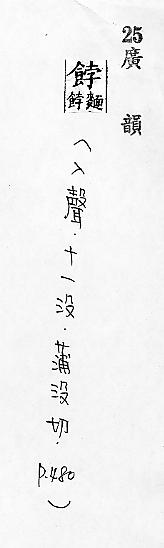 25廣韻
餑
餑麵
(入聲.十一没.蒲没切.p.480)